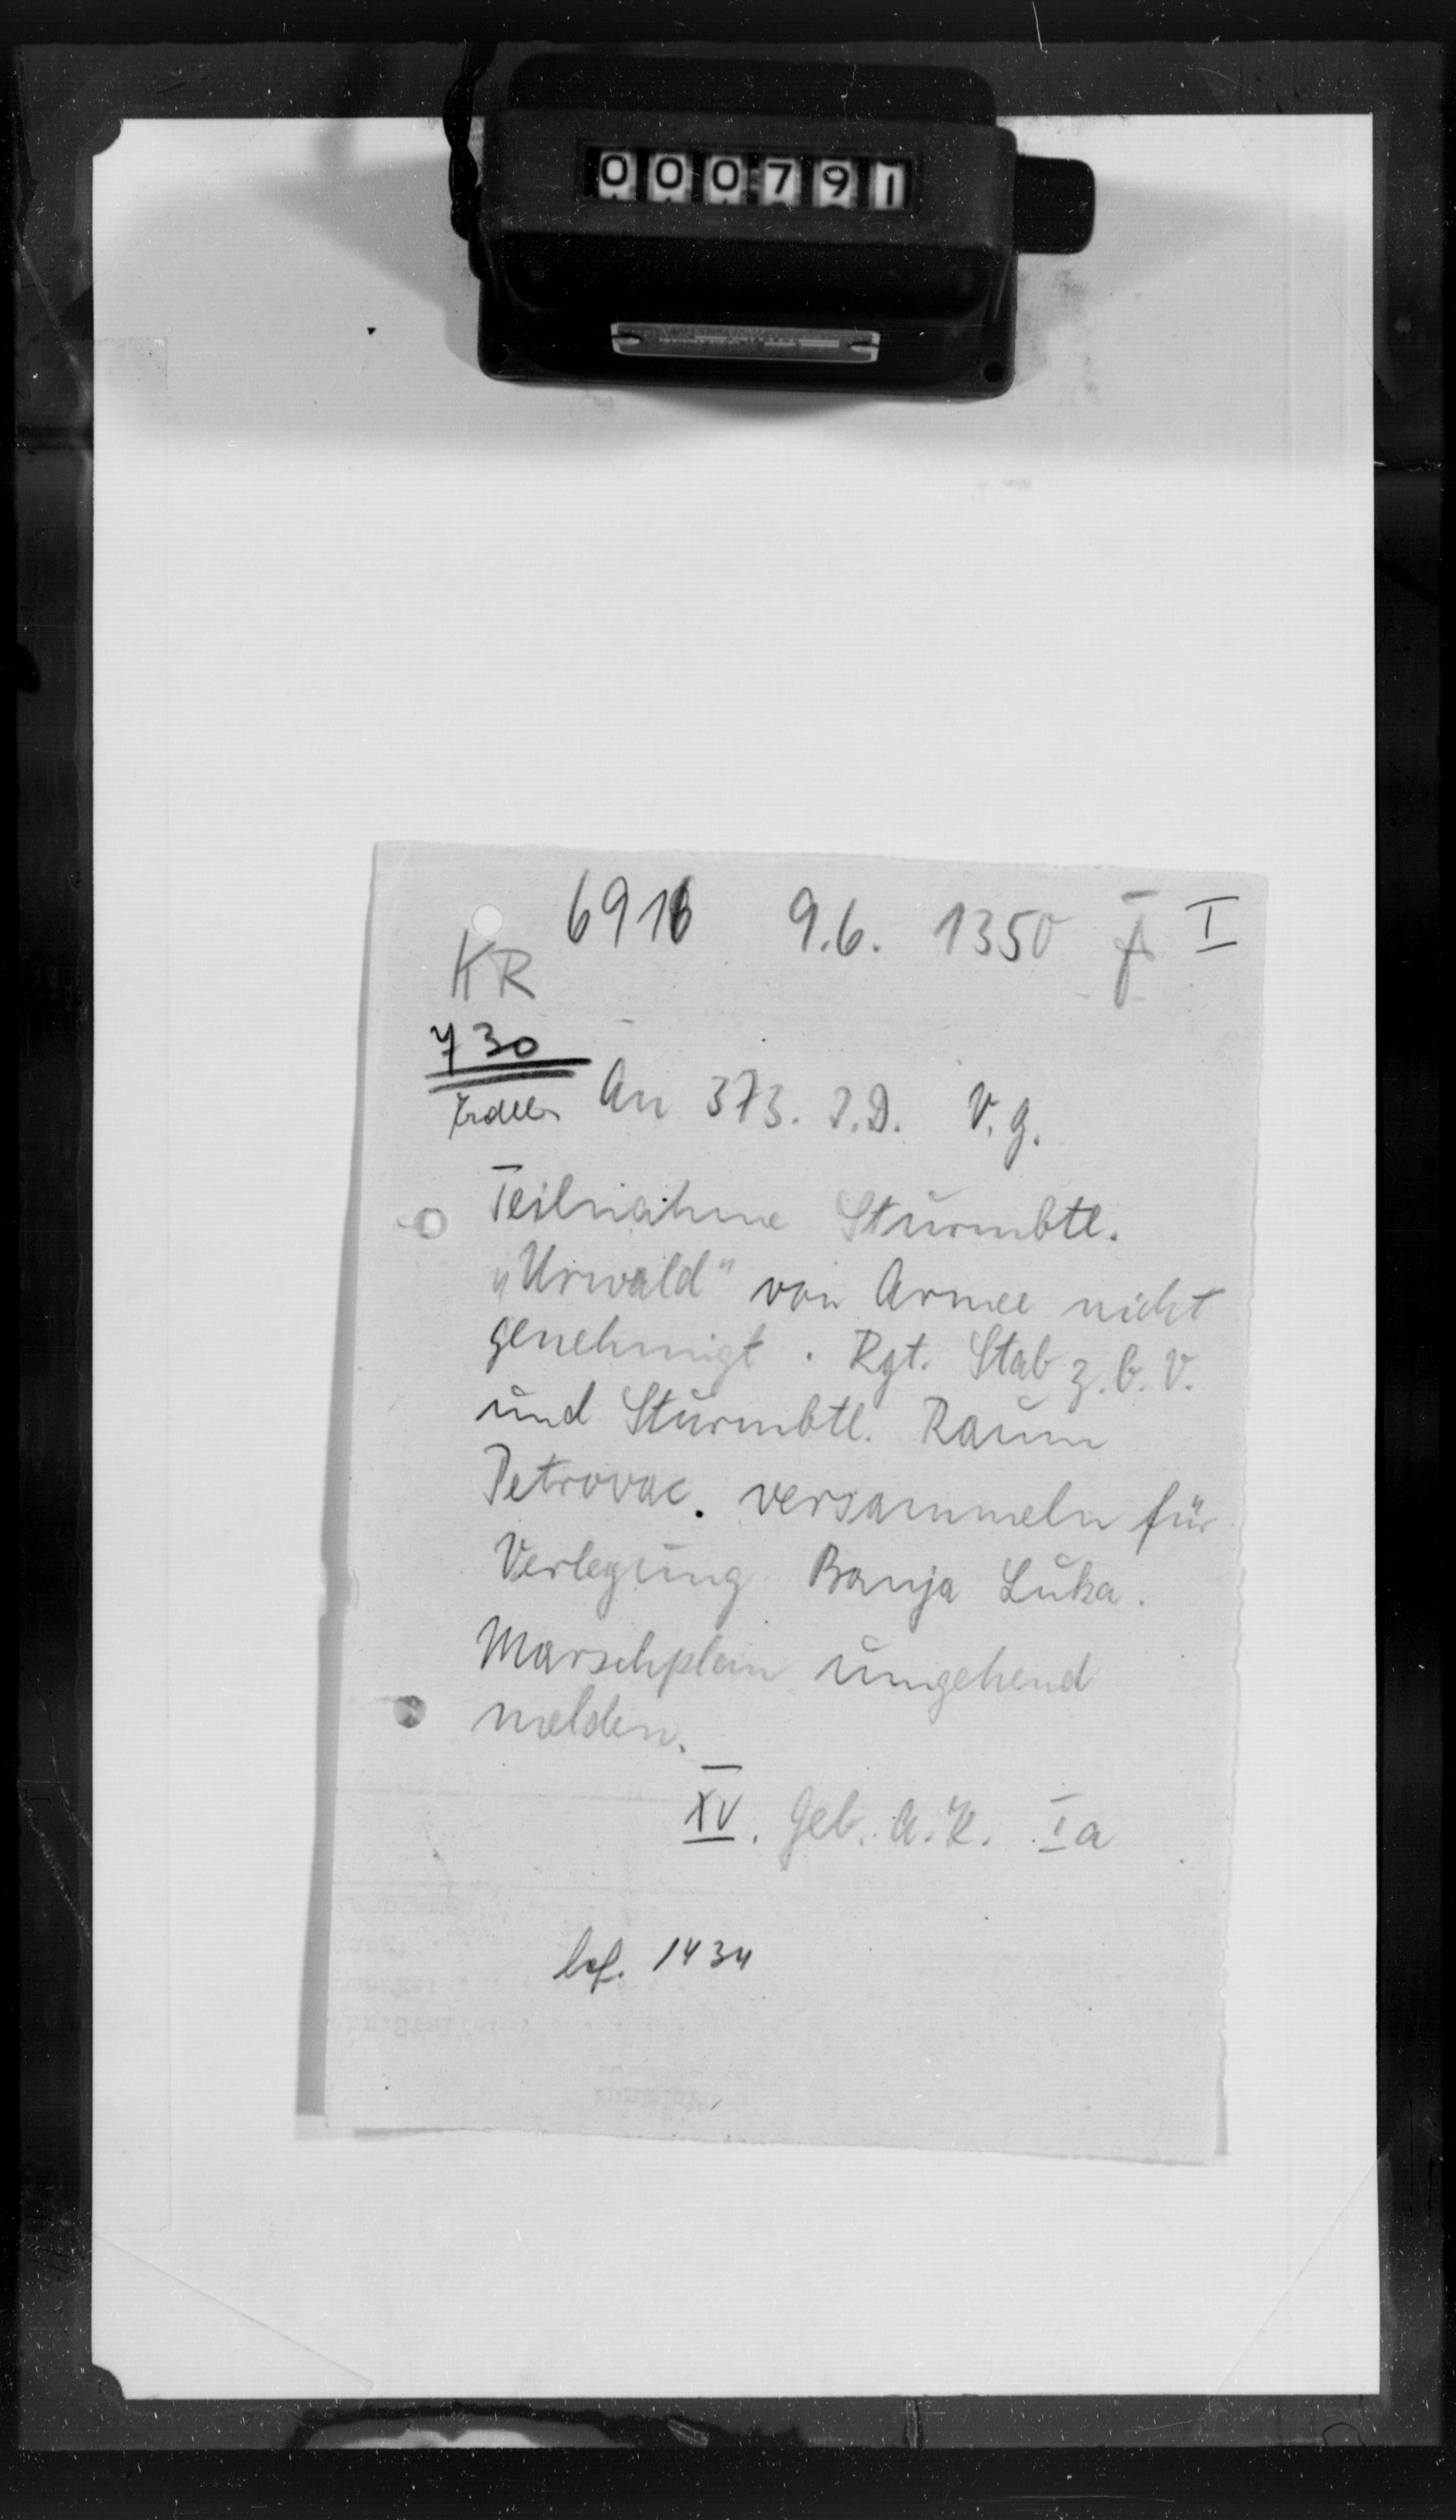 000791
6916 9.6. 1350 I
KR
730
An 373. I.D. V.g.
Teilnahme Sturmbtl.
„Urwald" von Armee nicht
genehmigt. Rgt. Stab z.b.V.
und Sturmbtl. Raum
Petrovac. versammeln für
Verlegung Banja Luka.
Marschplan umgehend
melden.
XV. Geb. A.K. Ia
bef. 1434